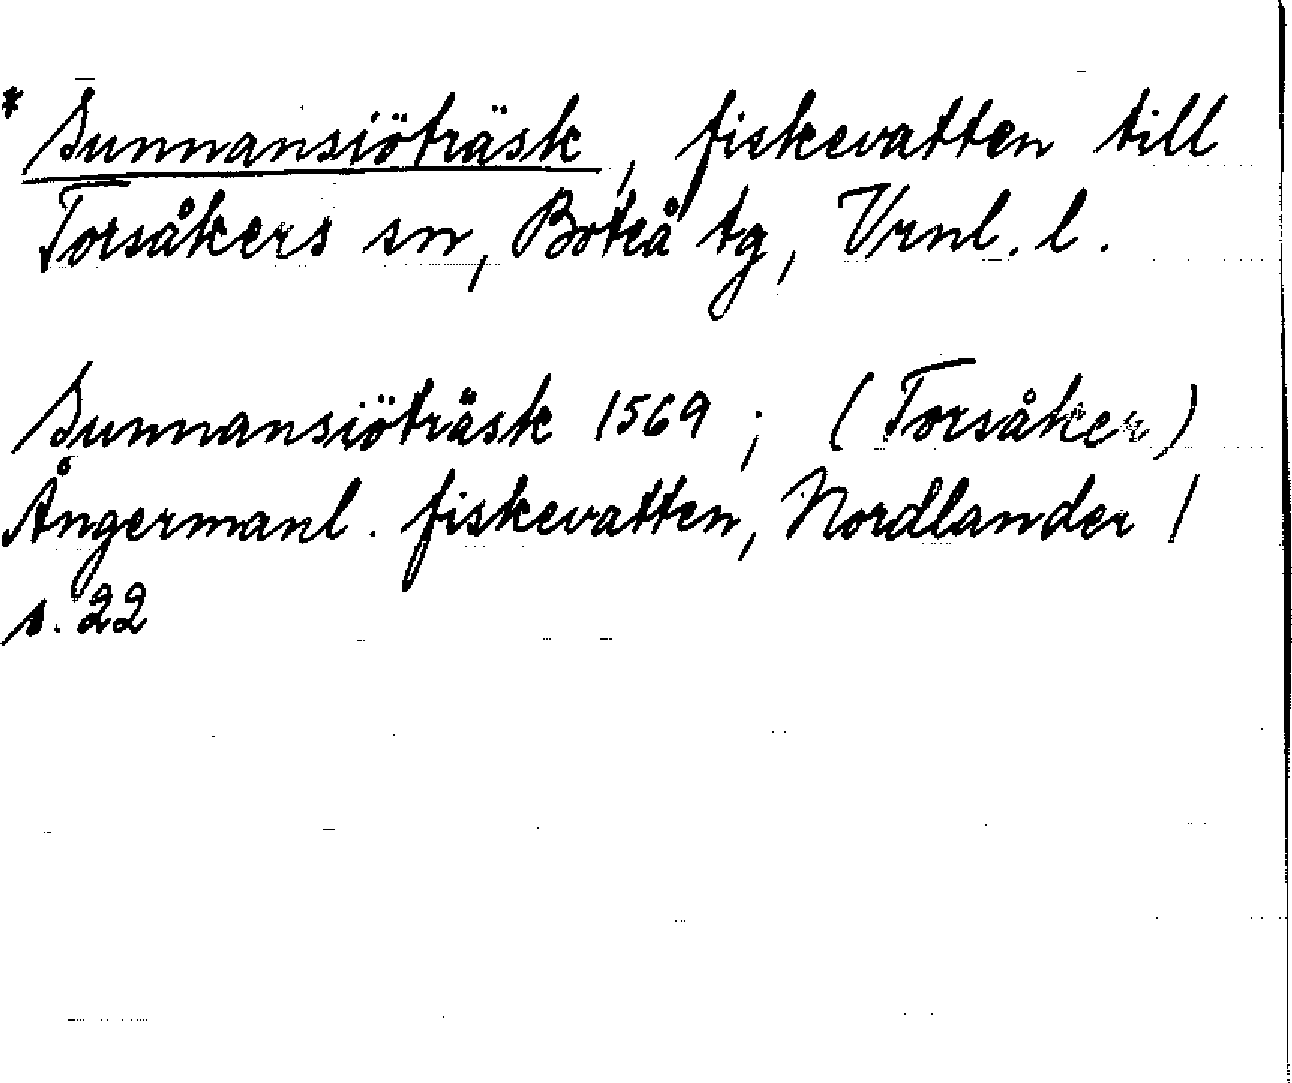 * Sunnansiöträsk, fiskevatten till
Torsåkers sn, Boteå tg, Vrnl. l.
Sunnansiöträsk 1569; (Torsåker)
Ångermanl. fiskevatten, Nordlander /
s. 22